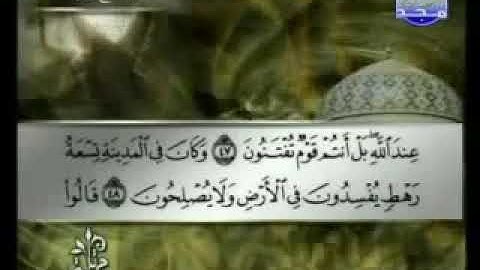 مجد
عِندَ ٱللَّهِ ۖ بَلْ أَنتُمْ قَوْمٌ تُفْتَنُونَ ٤٧ وَكَانَ فِي ٱلْمَدِينَةِ تِسْعَةُ
رَهْطٍ يُفْسِدُونَ فِي ٱلْأَرْضِ وَلَا يُصْلِحُونَ ٤٨ قَالُوا۟